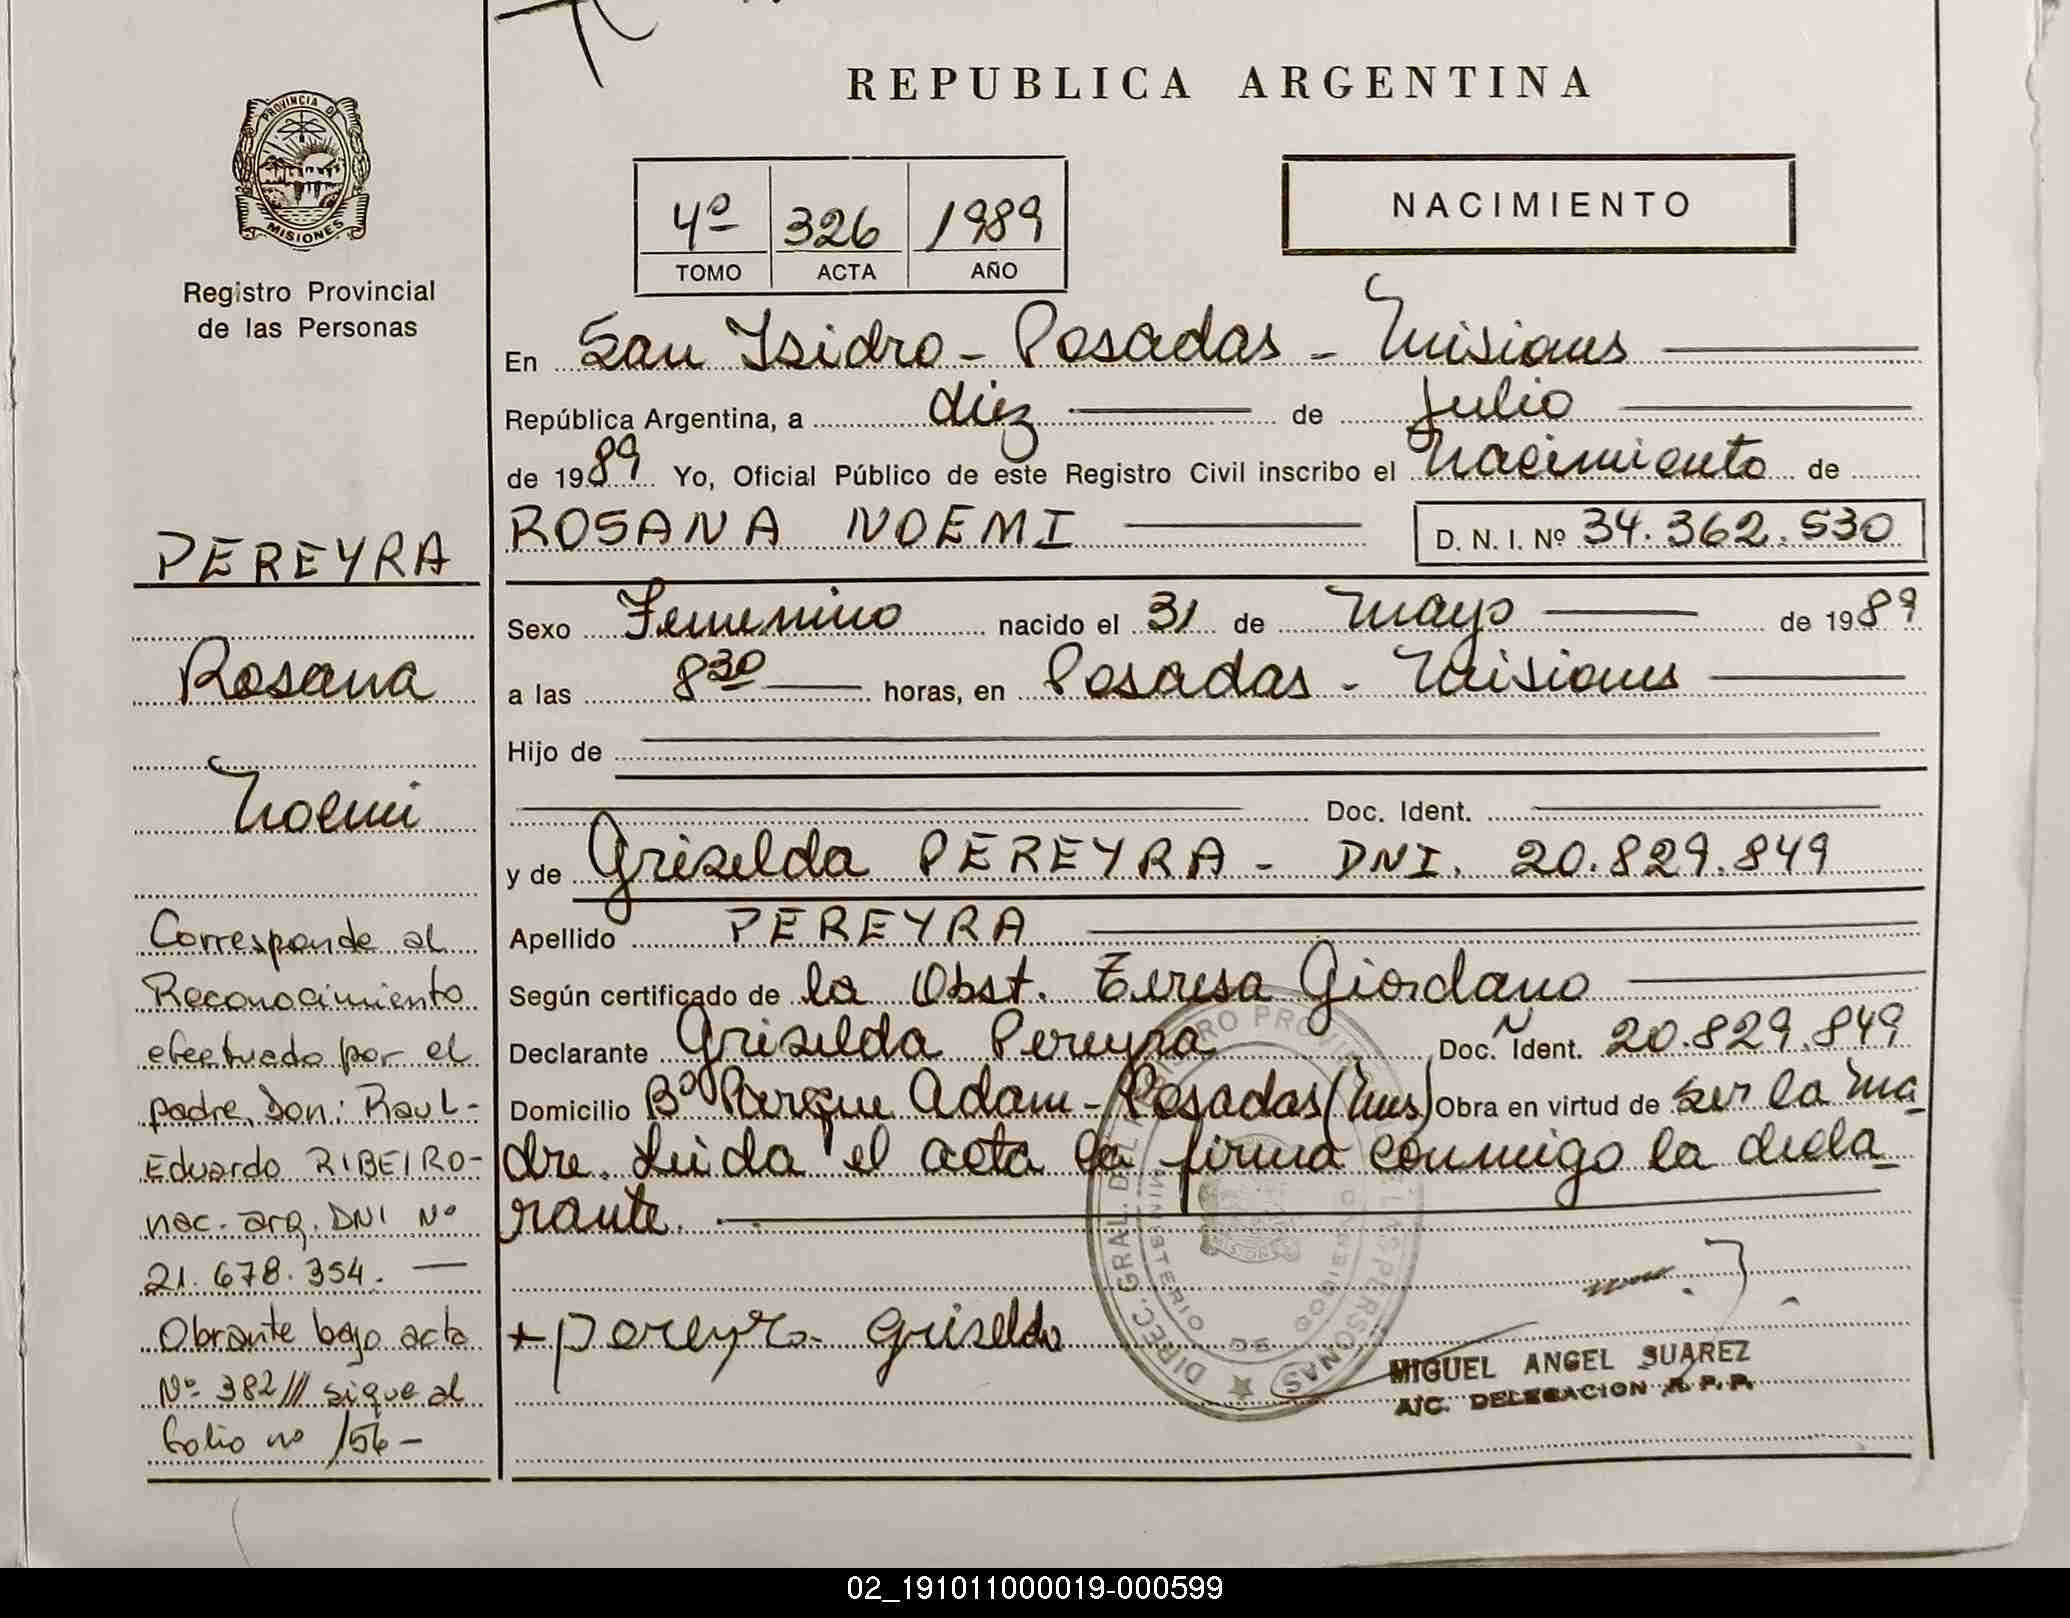 REPUBLICA ARGENTINA
PROVINCIA DE
MISIONES
Registro Provincial
de las Personas
4º 326 1989
TOMO ACTA AÑO
NACIMIENTO
En San Isidro - Posadas - Misiones
República Argentina, a diez de Julio
de 1989 Yo, Oficial Público de este Registro Civil inscribo el Nacimiento de
ROSANA NOEMI D. N. I. Nº 34.362.530
Sexo Femenino nacido el 31 de Mayo de 1989
a las 8 30 horas, en Posadas - Misiones
Hijo de
Doc. Ident.
y de Griselda PEREYRA - DNI. 20.829.849
Apellido PEREYRA
Según certificado de la Obst. Teresa Giordano
Declarante Griselda Pereyra Doc. Ident. 20.829.849
Domicilio Bº Parque Adam - Posadas (Mnes) Obra en virtud de ser la ma_
dre. Leida el acta la firma conmigo la decla_
rante.
+ pereyra - Griselda
MIGUEL ANGEL SUAREZ
A/C. DELEGACION R. P. P.
PEREYRA
Rosana
Noemi
Corresponde al
Reconocimiento
efectuado por el
padre, Don: Raul -
Eduardo RIBEIRO -
nac. arg. DNI Nº
21.678.354. —
Obrante bajo acta
Nº 382/// sigue al
folio nº 156 -
DIREC. GRAL. DEL REGISTRO PROVINCIAL DE LAS PERSONAS
MINISTERIO DE GOBIERNO
02_191011000019-000599